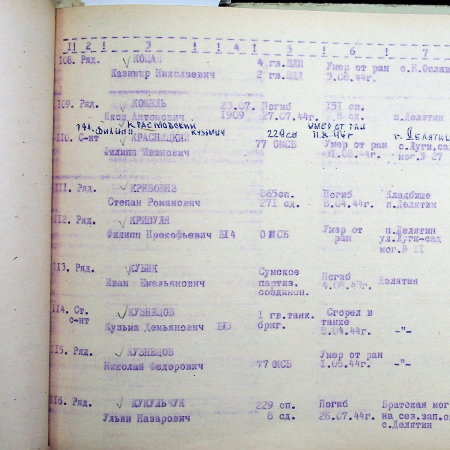 1! 2 ! 3 ! 4 ! 5 ! 6 ! 7
108. Ряд. КОЦАЙ 4 гв.ВДП Умер от ран
Казимир Николаевич 2 гв.ВДД 3.08.44г.
109. Ряд. КОВЕЛЬ 23.07. Погиб 151 сп.
Яков Антонович 1909 27.07.44г. 8 сд. п.Делятин
РЯД. ФИЛИПП КРАСТОВСКИЙ КУЗЬМИЧ 229сп УМЕР ОТ РАН г. ДЕЛЯТИН
110. С-нт КРАСНИЦКИЙ 77 ОМСБ Умер от ран с.Луги,сад
Филипп Иванович 31.08.44г. мог.№ 27
111. Ряд. КРИВОВЯЗ 865сп. Погиб Кладбище
Степан Романович 271 сд. 8.04.44г. п.Делятин
112. Ряд. КРИВУЛЯ Умер от п.Делятин
Филипп Прокофьевич ОМСБ ран ул.Луги-сад
мог.№ 11
113. Ряд. КУБИК Сумское Погиб
Иван Емельянович партиз. 4.08.43г. Делятин
соединен.
114. Ст. КУЗНЕЦОВ 1 гв.танк. Сгорел в
с-нт Кузьма Демьянович бриг. танке -"-
8.04.44г.
115. Ряд. КУЗНЕЦОВ Умер от ран
Николай Федорович 77 ОМСБ 1.08.44г. -"-
116. Ряд. КУКУЛЬЧУК 229 сп. Погиб Братская мог
Ульян Назарович 8 сд. 26.07.44г. на сев.зап.о
с.Делятин